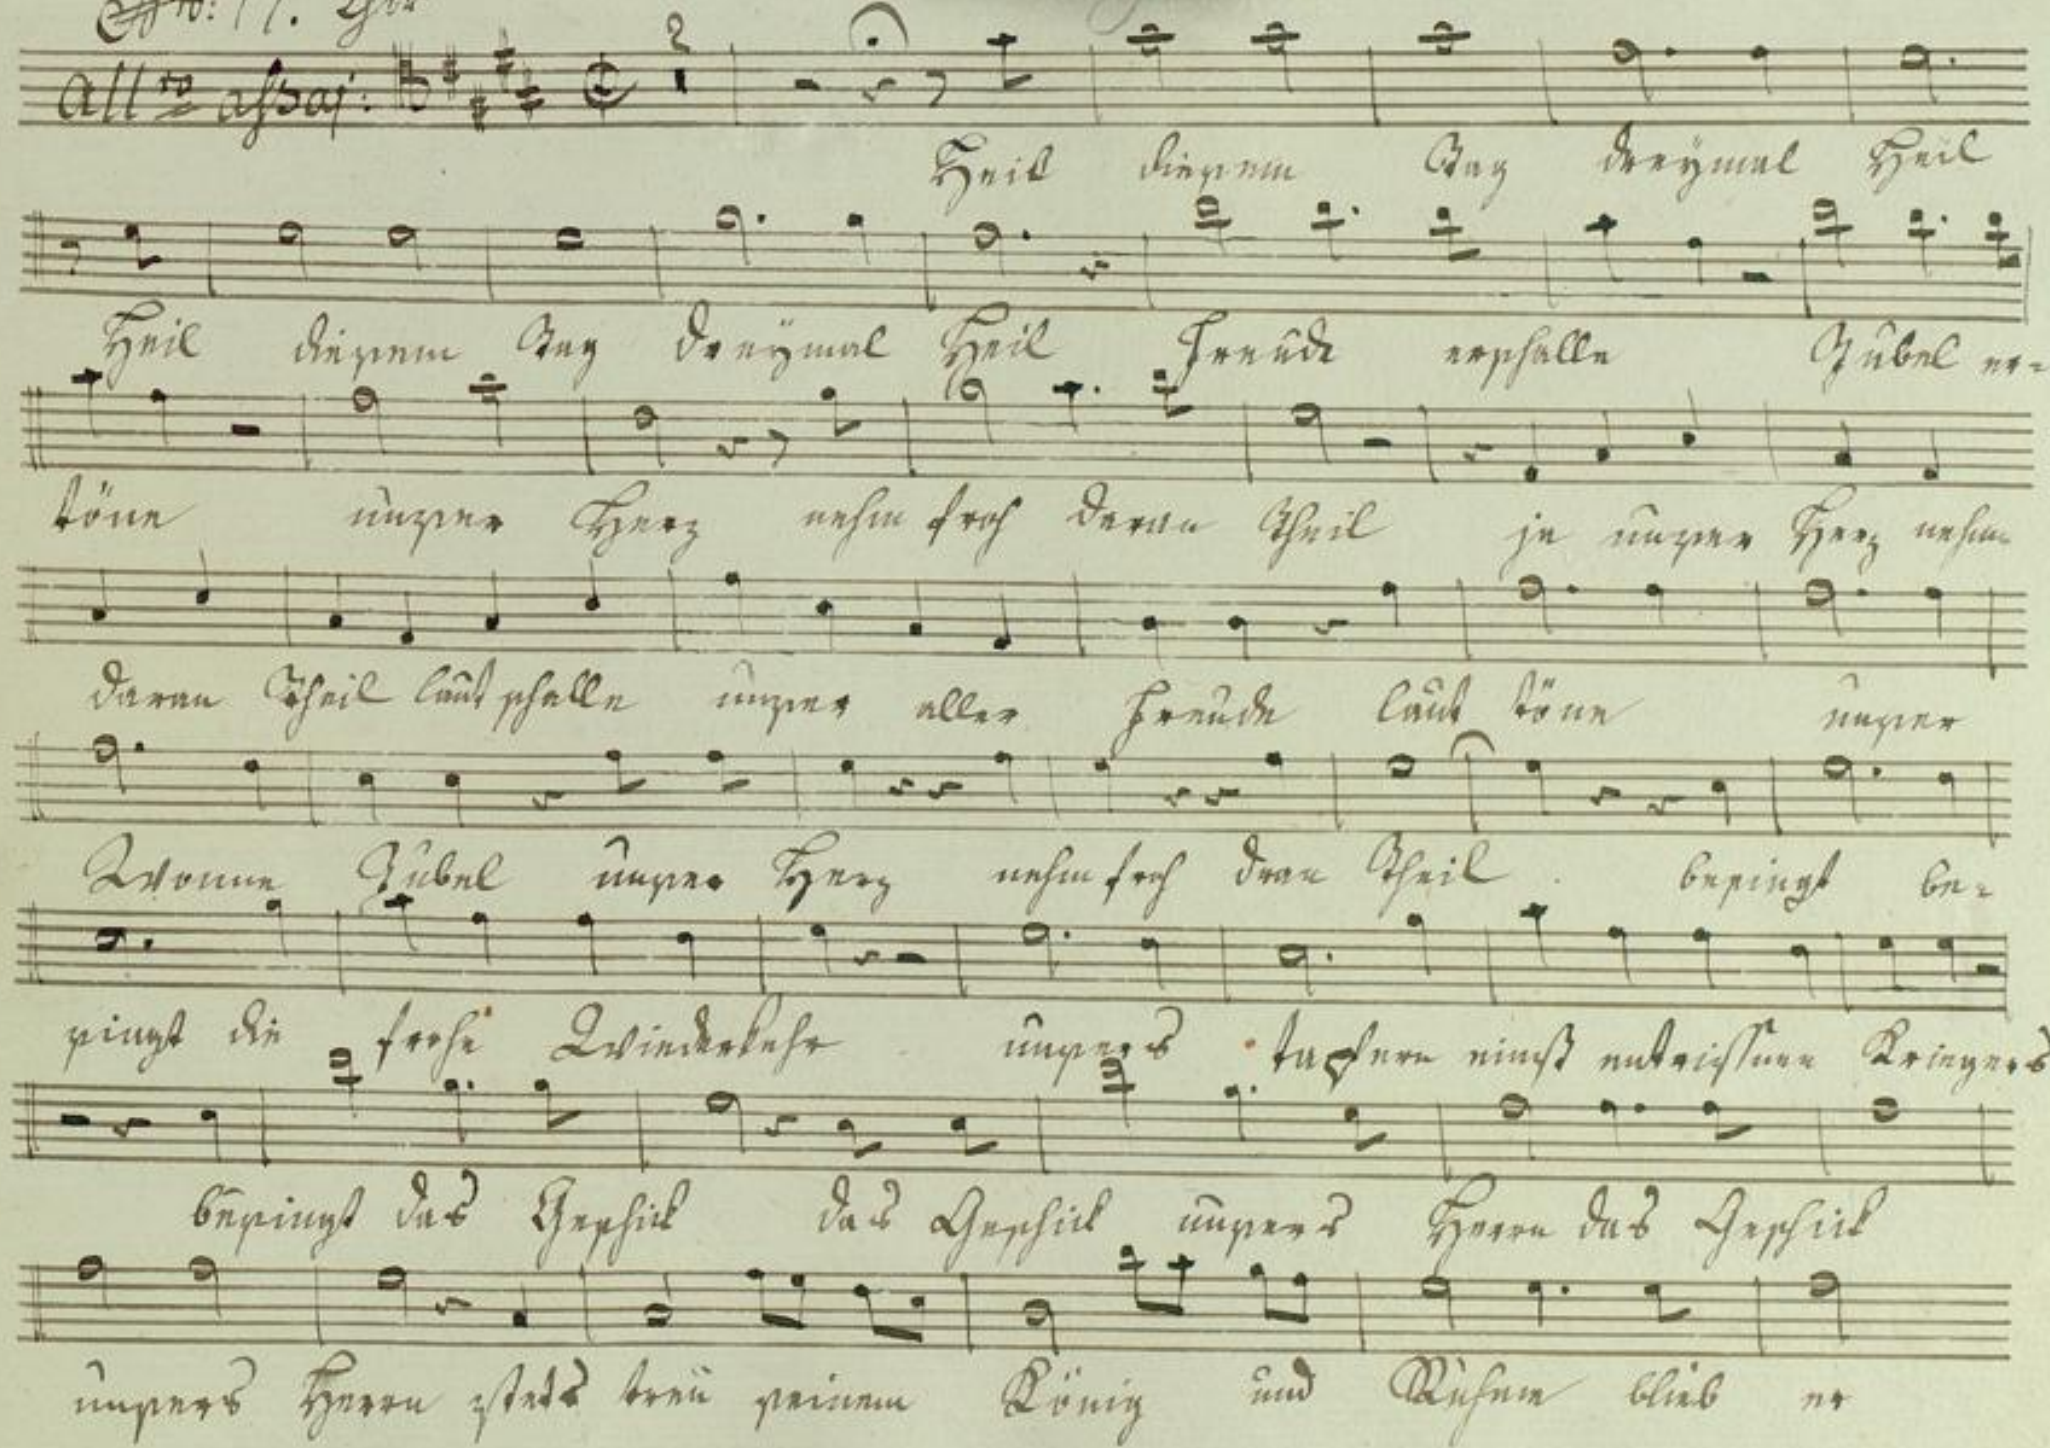 No: 11. Chor
All:ro assaj:
2
Heil diesem Tag dreÿmal Heil
Heil diesem Tag dreÿmal Heil Freude erschalle Jubel er=
töne unser Herz nehm froh daran Theil ja unser Herz nehm
daran Theil laut schalle unser aller Freude laut töne unser
Wonne Jubel unser Herz nehm froh dran Theil besingt be=
singt die frohe Wiederkehr unsers tapfern einst entrissnen Kriegers
besingt das Geschick das Geschick unsers Herrn das Geschick
unsers Herrn stets treu seinem König und Ruhme blieb er